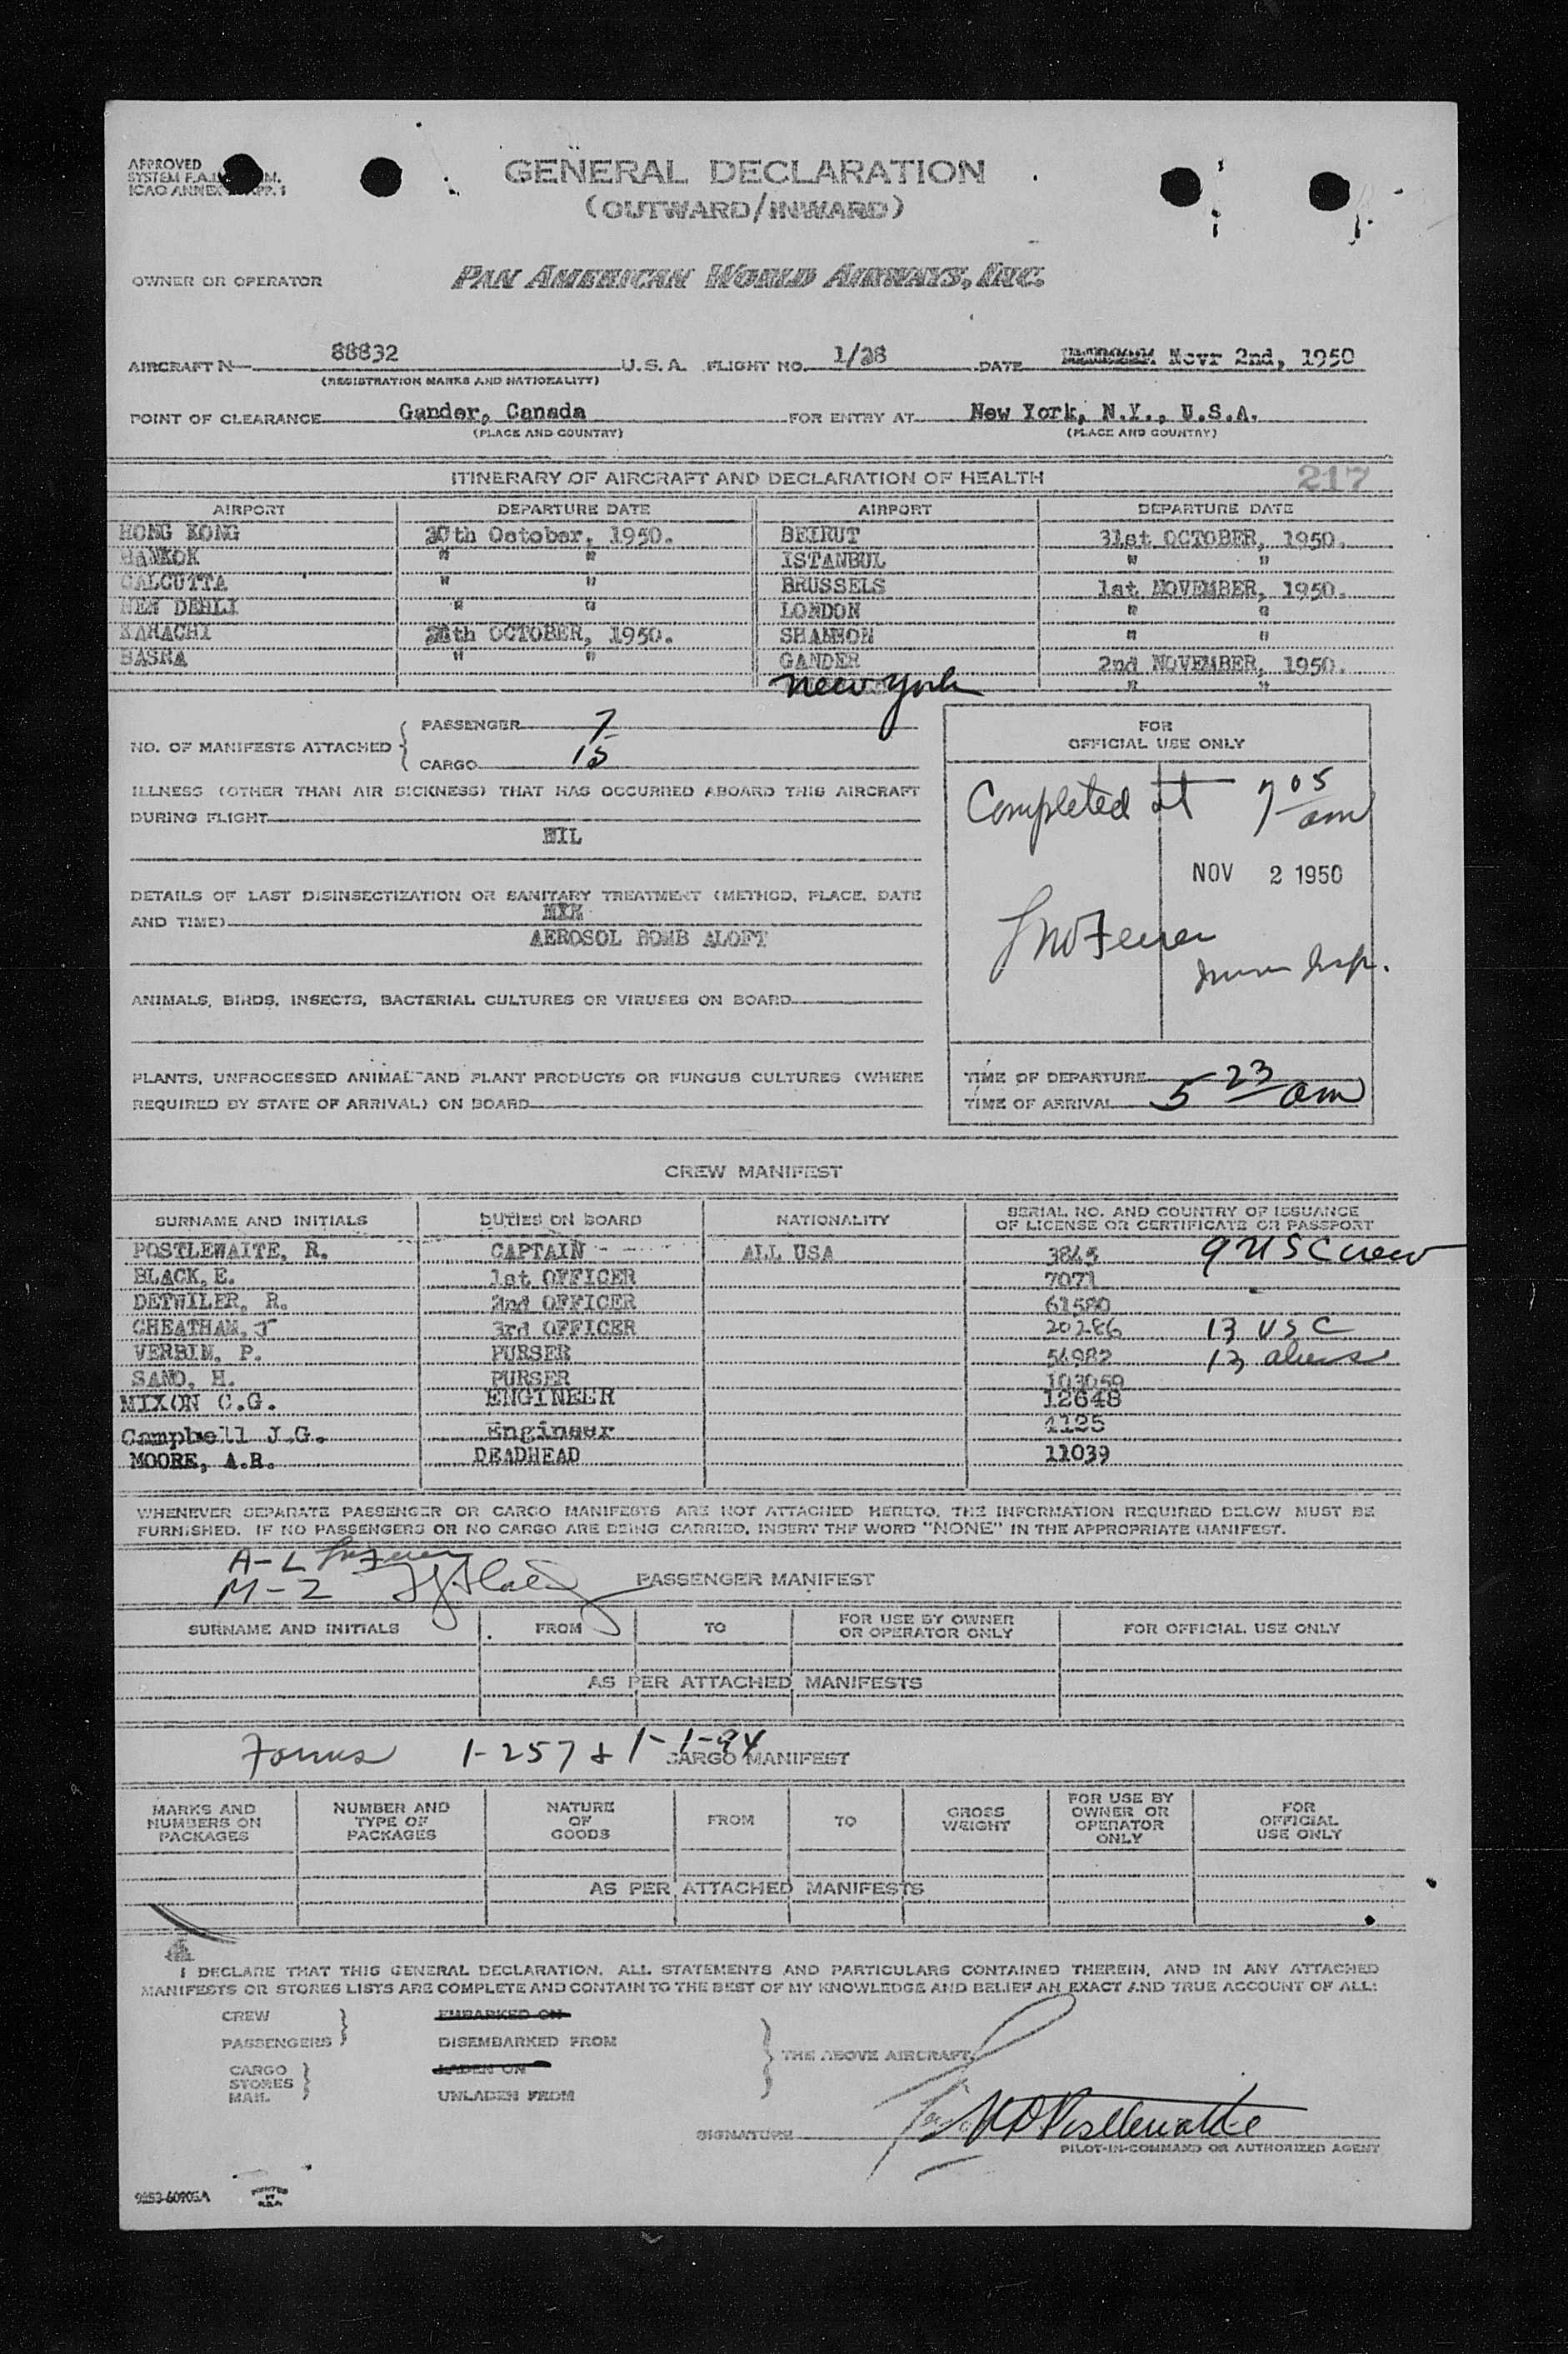 APPROVED
SYSTEM F.A.L.
ICAO ANNEX APP. 1
GENERAL DECLARATION
(OUTWARD/INWARD)
OWNER OR OPERATOR PAN AMERICAN WORLD AIRWAYS, INC.
AIRCRAFT N 88832 U.S.A. FLIGHT NO. 1/28 DATE Novr 2nd, 1950
(REGISTRATION MARKS AND NATIONALITY)
POINT OF CLEARANCE Gander, Canada FOR ENTRY AT New York, N.Y., U.S.A.
(PLACE AND COUNTRY) (PLACE AND COUNTRY)
ITINERARY OF AIRCRAFT AND DECLARATION OF HEALTH 217
AIRPORT DEPARTURE DATE AIRPORT DEPARTURE DATE
HONG KONG 30th October, 1950. BEIRUT 31st OCTOBER, 1950.
BANKOK " " ISTANBUL " "
CALCUTTA " " BRUSSELS 1st NOVEMBER, 1950.
NEW DEHLI " " LONDON " "
KARACHI OCTOBER, 1950. SHANNON " "
BASRA " " GANDER 2nd NOVEMBER, 1950.
New York " "
NO. OF MANIFESTS ATTACHED { PASSENGER 7
CARGO 15
FOR
OFFICIAL USE ONLY
ILLNESS (OTHER THAN AIR SICKNESS) THAT HAS OCCURRED ABOARD THIS AIRCRAFT
DURING FLIGHT
NIL
Completed at 7 05 am
NOV 2 1950
DETAILS OF LAST DISINSECTIZATION OR SANITARY TREATMENT (METHOD, PLACE, DATE
AND TIME)
AEROSOL BOMB ALOFT
Insp.
ANIMALS, BIRDS, INSECTS, BACTERIAL CULTURES OR VIRUSES ON BOARD
PLANTS, UNPROCESSED ANIMAL AND PLANT PRODUCTS OR FUNGUS CULTURES (WHERE
REQUIRED BY STATE OF ARRIVAL) ON BOARD
TIME OF DEPARTURE
TIME OF ARRIVAL 5 23 am
CREW MANIFEST
SURNAME AND INITIALS DUTIES ON BOARD NATIONALITY SERIAL NO. AND COUNTRY OF ISSUANCE
OF LICENSE OR CERTIFICATE OR PASSPORT
POSTLEWAITE, R. CAPTAIN ALL USA 3845 9 US Crew
BLACK, E. 1st OFFICER 7071
DETWILER, R. 2nd OFFICER 61580
CHEATHAM, J 3rd OFFICER 20286 13 USC
VERBIN, P. PURSER 54982 13 aliens
SAND, H. PURSER 103059
MIXON C.G. ENGINEER 12648
Campbell J.G. Engineer 4125
MOORE, A.R. DEADHEAD 11039
WHENEVER SEPARATE PASSENGER OR CARGO MANIFESTS ARE NOT ATTACHED HERETO, THE INFORMATION REQUIRED BELOW MUST BE
FURNISHED. IF NO PASSENGERS OR NO CARGO ARE BEING CARRIED, INSERT THE WORD "NONE" IN THE APPROPRIATE MANIFEST.
A-L
M-Z
PASSENGER MANIFEST
SURNAME AND INITIALS FROM TO FOR USE BY OWNER
OR OPERATOR ONLY FOR OFFICIAL USE ONLY
AS PER ATTACHED MANIFESTS
Forms 1-257 & 1-1-94
CARGO MANIFEST
MARKS AND
NUMBERS ON
PACKAGES
NUMBER AND
TYPE OF
PACKAGES
NATURE
OF
GOODS
FROM
TO
GROSS
WEIGHT
FOR USE BY
OWNER OR
OPERATOR
ONLY
FOR
OFFICIAL
USE ONLY
AS PER ATTACHED MANIFESTS
I DECLARE THAT THIS GENERAL DECLARATION, ALL STATEMENTS AND PARTICULARS CONTAINED THEREIN, AND IN ANY ATTACHED
MANIFESTS OR STORES LISTS ARE COMPLETE AND CONTAIN TO THE BEST OF MY KNOWLEDGE AND BELIEF AN EXACT AND TRUE ACCOUNT OF ALL:
CREW EMBARKED ON
PASSENGERS DISEMBARKED FROM
THE ABOVE AIRCRAFT.
CARGO LADEN ON
STORES
MAIL UNLADEN FROM
SIGNATURE Postlewaite
PILOT-IN-COMMAND OR AUTHORIZED AGENT
PRINTED
IN
U.S.A.